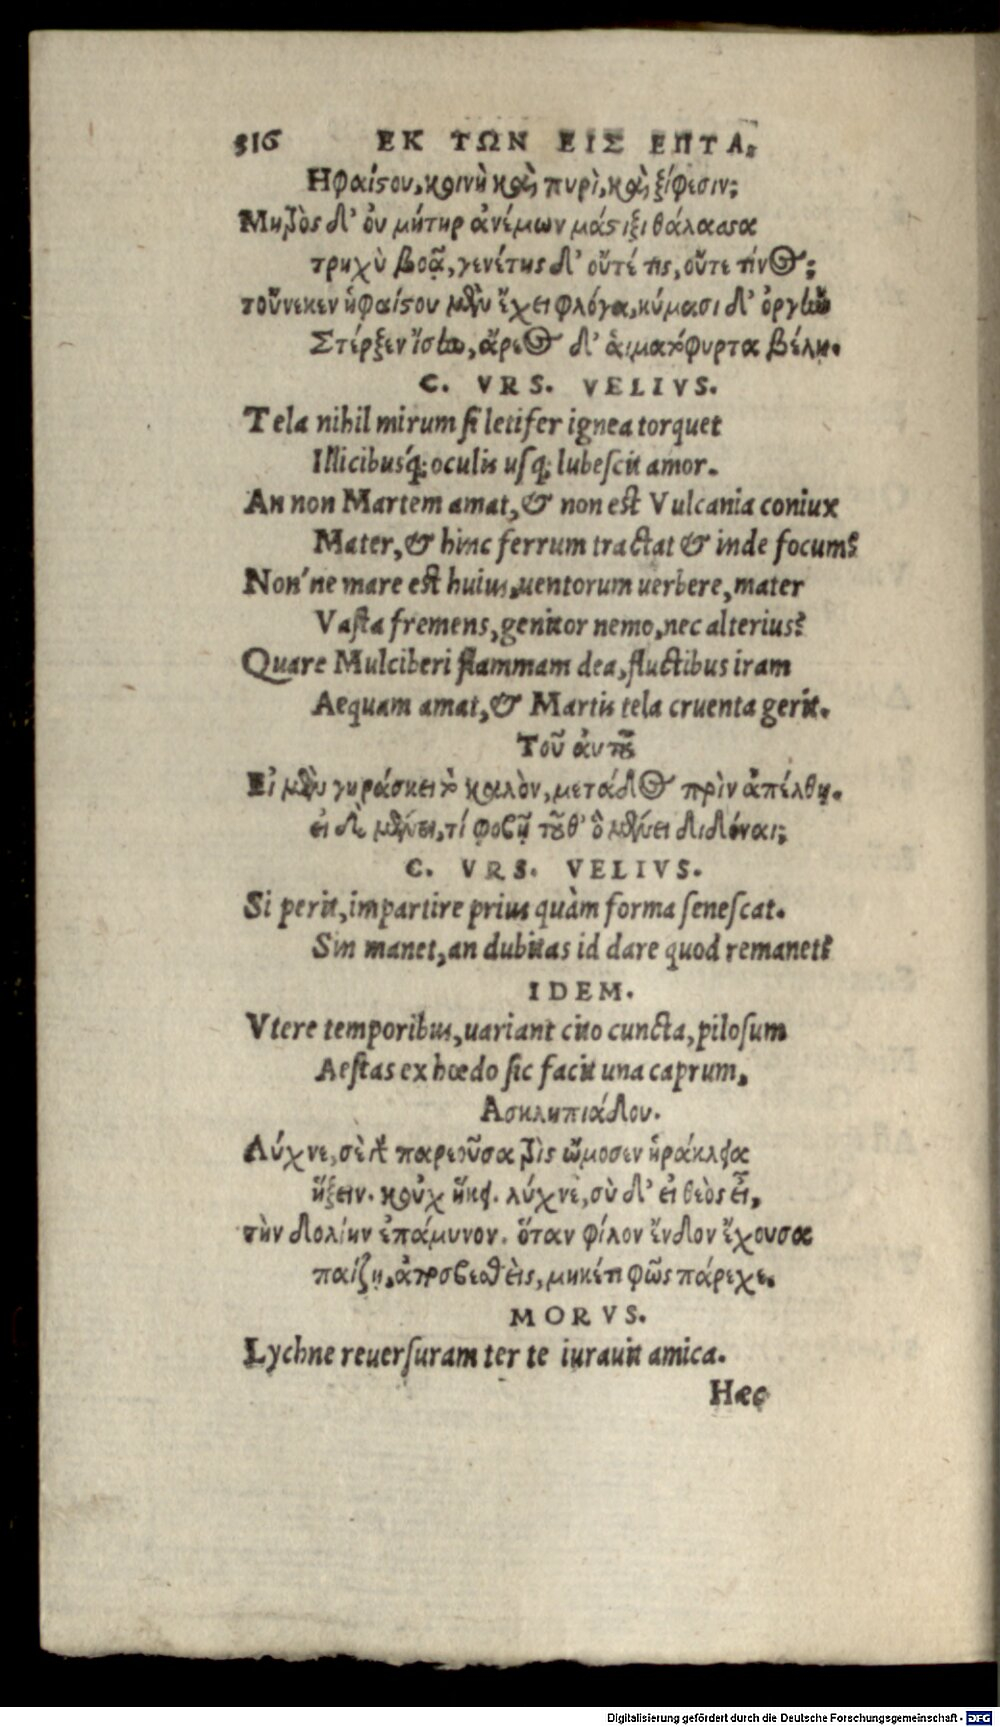 316 ΕΚ ΤΩΝ ΕΙΣ ΕΠΤΑ.
Ηφαίστου, κοινὴ καὶ πυρὶ, καὶ ξίφεσιν;
Μητρὸς δ' οὐ μήτηρ ἀνέμων μάστιξι θάλασσα
τρηχὺ βοᾷ, γενέτης δ' οὔτέ τις, οὔτε τινός;
τοὔνεκεν ἡφαίστου μὲν ἔχει φλόγα, κύμασι δ' ὀργὴν
Στέρξεν ἴσην, ἄρεος δ' αἱματόφυρτα βέλη.
C. VRS. VELIVS.
Tela nihil mirum si letifer ignea torquet
Illicibusq́; oculis usq; lubescit amor.
An non Martem amat, & non est Vulcania coniux
Mater, & hinc ferrum tractat & inde focum?
Non'ne mare est huius, uentorum uerbere, mater
Vasta fremens, genitor nemo, nec alterius?
Quare Mulciberi flammam dea, fluctibus iram
Aequam amat, & Martis tela cruenta gerit.
Τοῦ ἀυτοῦ
Εἰ μὲν γηράσκει τὸ καλὸν, μετάδος πρὶν ἀπέλθῃ.
εἰ δὲ μένει, τί φοβῇ τοῦθ' ὃ μένει διδόναι;
C. VRS. VELIVS.
Si perit, impartire prius quàm forma senescat.
Sin manet, an dubitas id dare quod remanet?
IDEM.
Vtere temporibus, uariant cito cuncta, pilosum
Aestas ex hœdo sic facit una caprum.
Ασκληπιάδου.
Λύχνε, σὲ παρεοῦσα τρὶς ὤμοσεν ἡράκλεια
ἥξειν. κοὐχ ἥκει. λύχνε, σὺ δ' εἰ θεὸς εἶ,
τὴν δολίην ἐπάμυνον. ὅταν φίλον ἔνδον ἔχουσα
παίζῃ, ἀποσβεσθεὶς, μηκέτι φῶς πάρεχε.
MORVS.
Lychne reuersuram ter te iurauit amica.
Hæc
Digitalisierung gefördert durch die Deutsche Forschungsgemeinschaft - DFG